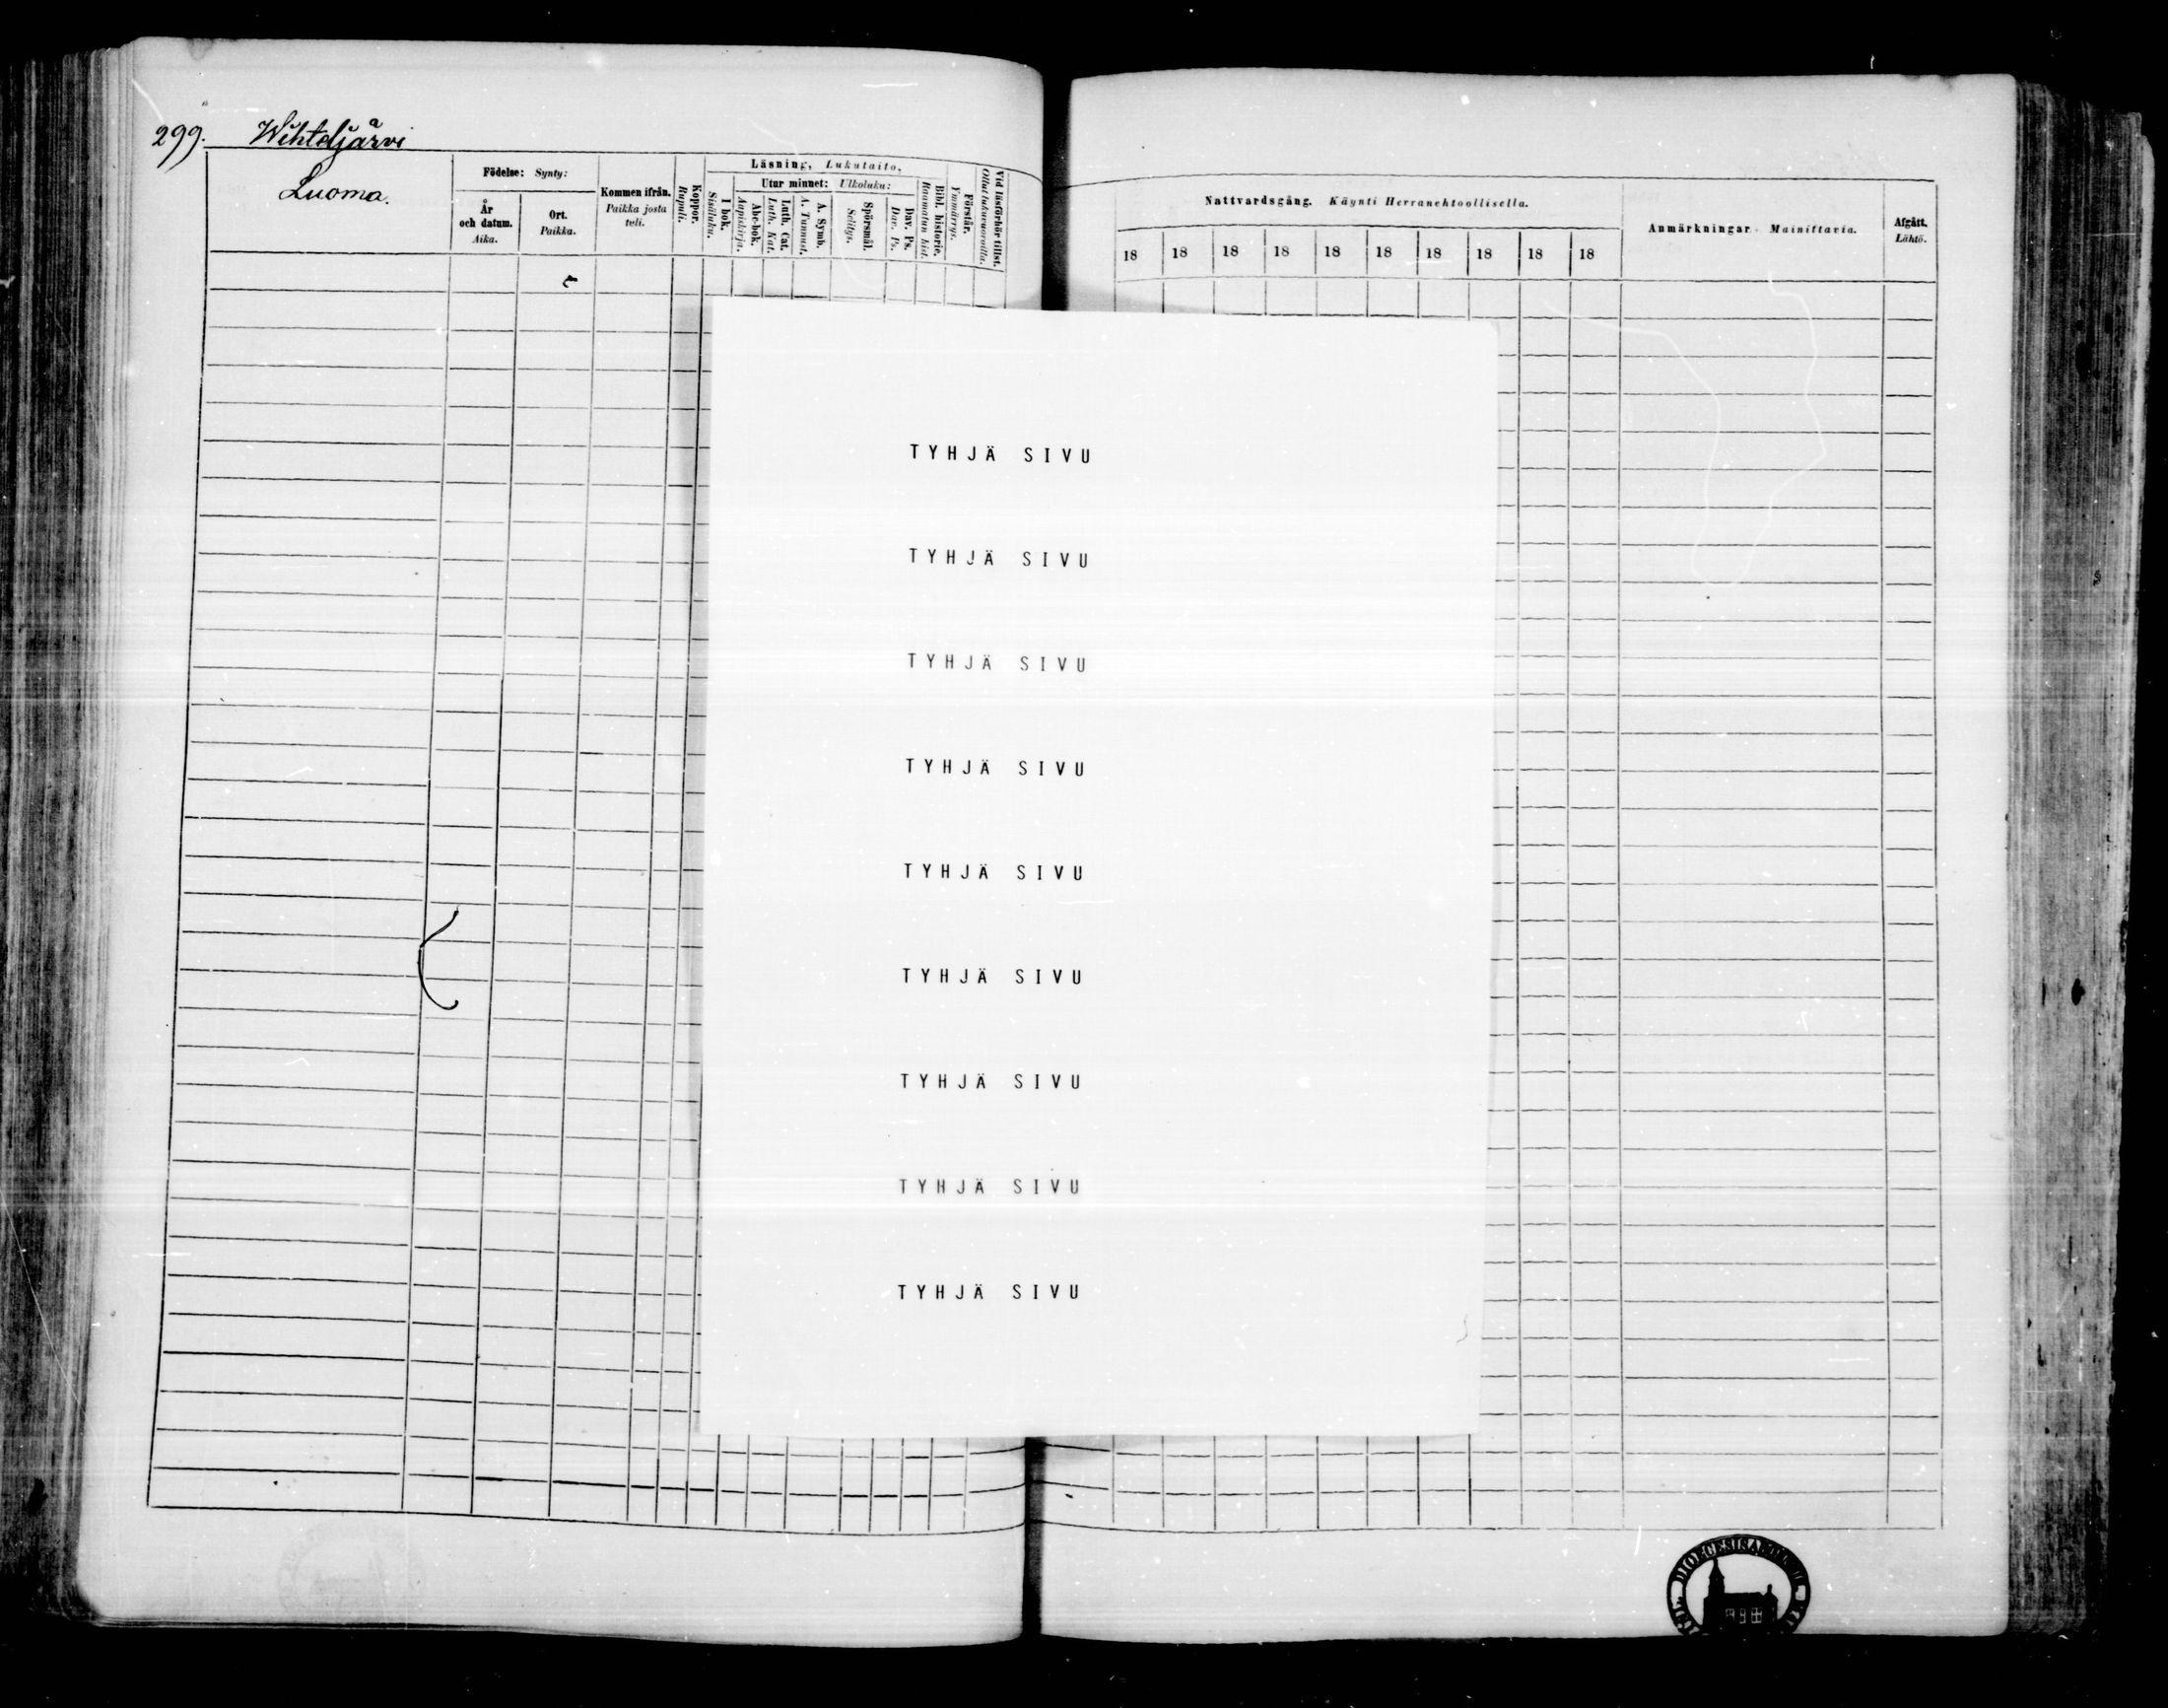 299. Wihteljärvi
Luoma.
Födelse: Synty:
År och datum. Aika.
Ort. Paikka.
Kommen ifrån. Paikka josta teli.
Koppor. Rupuli.
Läsning, Lukutaito,
I bok. Sisäluku.
Utur minnet: Ulkoluku:
Abc-bok. Aapiskirja.
Luth. Cat. Luth. Kat.
A. Symb. A. Tunnust.
Spörsmål. Selitys.
Dav. Ps. Dav. Ps.
Bibl. historie. Raamatun hist.
Förstår. Ymmärrys.
Vid läsförhör tillst. Ollut lukuvuoroilla.
Nattvardsgång. Käynti Herranehtoollisella.
18 18 18 18 18 18 18 18 18 18
Anmärkningar Mainittavia.
Afgått. Lähtö.
TYHJÄ SIVU
TYHJÄ SIVU
TYHJÄ SIVU
TYHJÄ SIVU
TYHJÄ SIVU
TYHJÄ SIVU
TYHJÄ SIVU
TYHJÄ SIVU
TYHJÄ SIVU